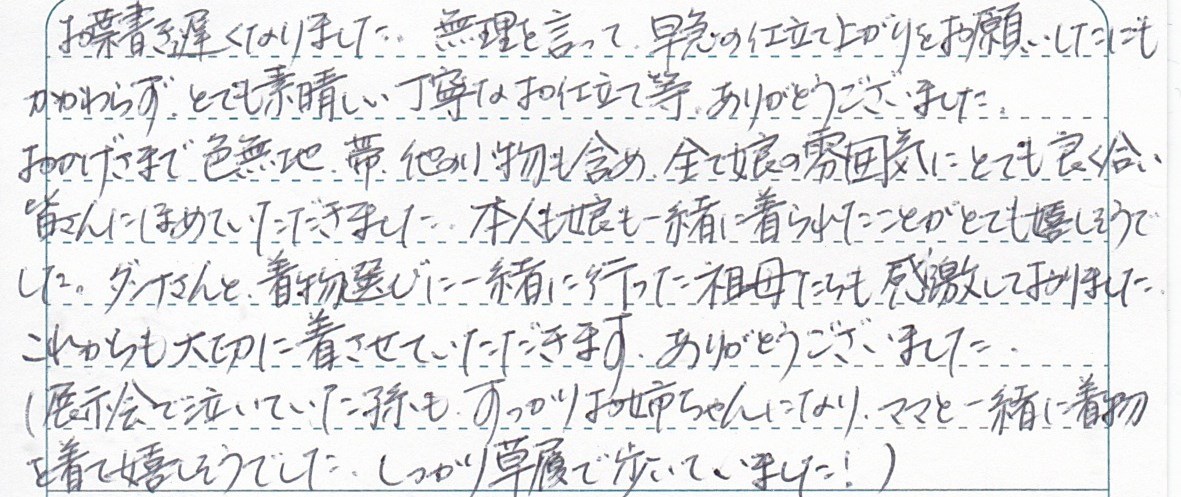 お葉書き遅くなりました。無理を言って、早急の仕立て上がりをお願いしたにも
かかわらず、とても素晴しい丁寧なお仕立て等、ありがとうございました。
おかげさまで色無地、帯、他の小物も含め、全て娘の雰囲気にとても良く合い
皆さんにほめていただきました。本人も娘も一緒に着られたことがとても嬉しそうで
した。ダンナさんと、着物選びに一緒に行った祖母たちも感激しておりました。
これからも大切に着させていただきます。ありがとうございました。
(展示会で泣いていた孫も、すっかりお姉ちゃんになり、ママと一緒に着物
を着て嬉しそうでした。しっかり草履で歩いていました!)